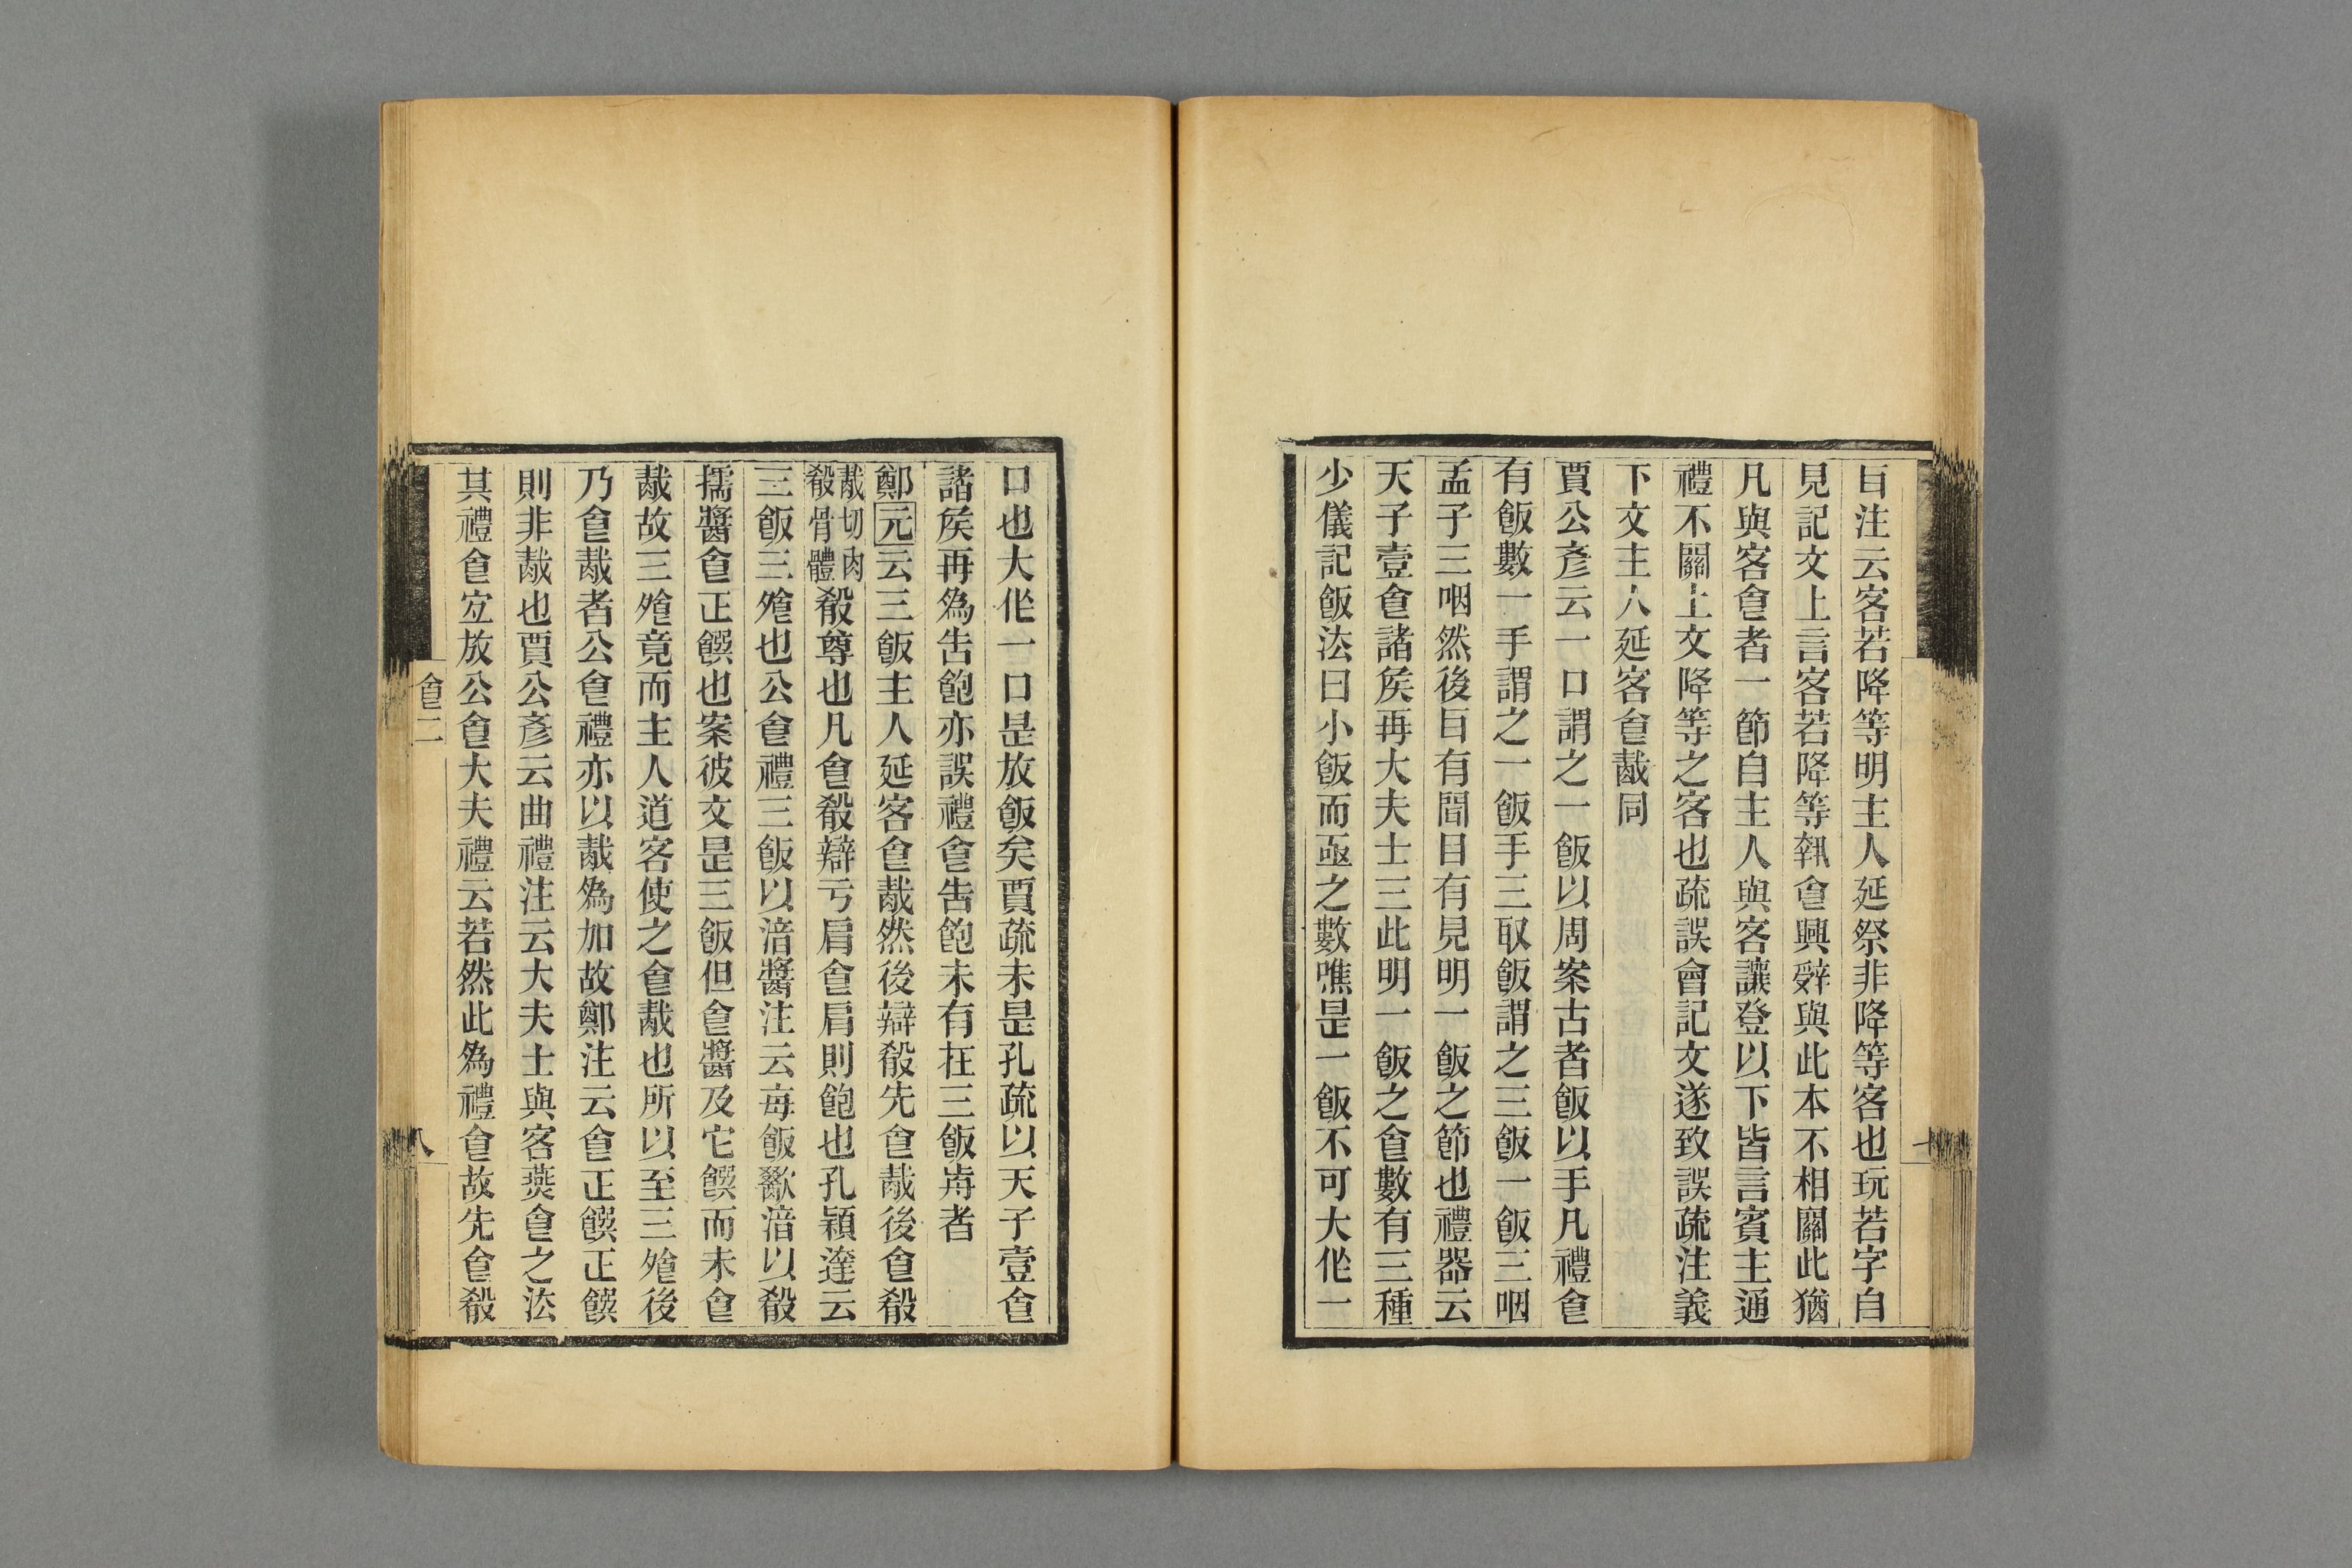 㠯注云客若降等明主人延祭非降等客也玩若字自
見記文上言客若降等執㑹興辭與此本不相關此猶
凡與客㑹者一節自主人與客讓登以下皆言賓主通
禮不關上文降等之客也疏誤會記文遂致誤疏注義
下文主人延客㑹胾同
賈公彥云一口謂之一飯以周案古者飯以手凡禮㑹
有飯數一手謂之一飯手三取飯謂之三飯一飯三咽
孟子三咽然後㠯有聞目有見明一飯之節也禮器云
天子壹㑹諸矦再大夫士三此明一飯之㑹數有三種
少儀記飯法曰小飯而亟之數噍是一飯不可大作一
口也大作一口是放飯矣賈疏未是孔疏以天子壹㑹
諸矦再為告飽亦誤禮㑹告飽未有在三飯歬者
鄭元云三飯主人延客㑹胾然後辯殽先㑹胾後㑹殽
胾切肉殽骨體殽尊也凡㑹殽辯亏肩㑹肩則飽也孔穎達云
三飯三飧也公㑹禮三飯以湆醬注云每飯歠湆以殽
擩醬㑹正饌也案彼文是三飯但㑹醬及它饌而未㑹
胾故三飧竟而主人道客使之㑹胾也所以至三飧後
乃㑹胾者公㑹禮亦以胾為加故鄭注云㑹正饌正饌
則非胾也賈公彥云曲禮注云大夫士與客燕㑹之法
其禮㑹宐放公㑹大夫禮云若然此為禮㑹故先㑹殽
㑹二
八